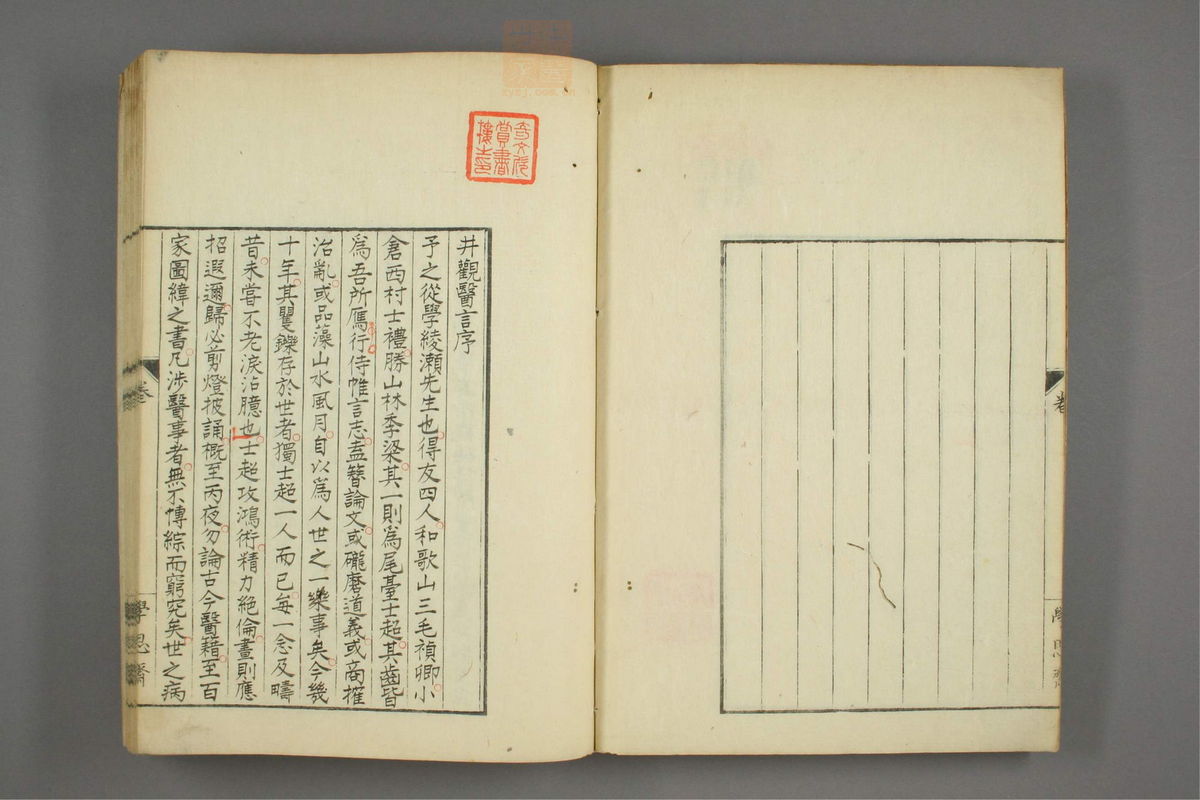 井觀醫言序
予之從學綾瀬先生也得友四人和歌山三毛禎卿小
倉西村士禮勝山林季梁其一則爲尾臺士超其齒皆
爲吾所鴈行侍帷言志盍簪論文或礲磨道義或商搉
治亂或品藻山水風月自以爲人世之一樂事矣今幾
十年其矍鑠存於世者獨士超一人而已每一念及疇
昔未嘗不老淚沾臆也士超攻鴻術精力絶倫晝則應
招遐邇歸必剪燈披誦概至丙夜勿論古今醫籍至百
家圖緯之書凡涉醫事者無不博綜而窮究矣世之病
卷
學思齋